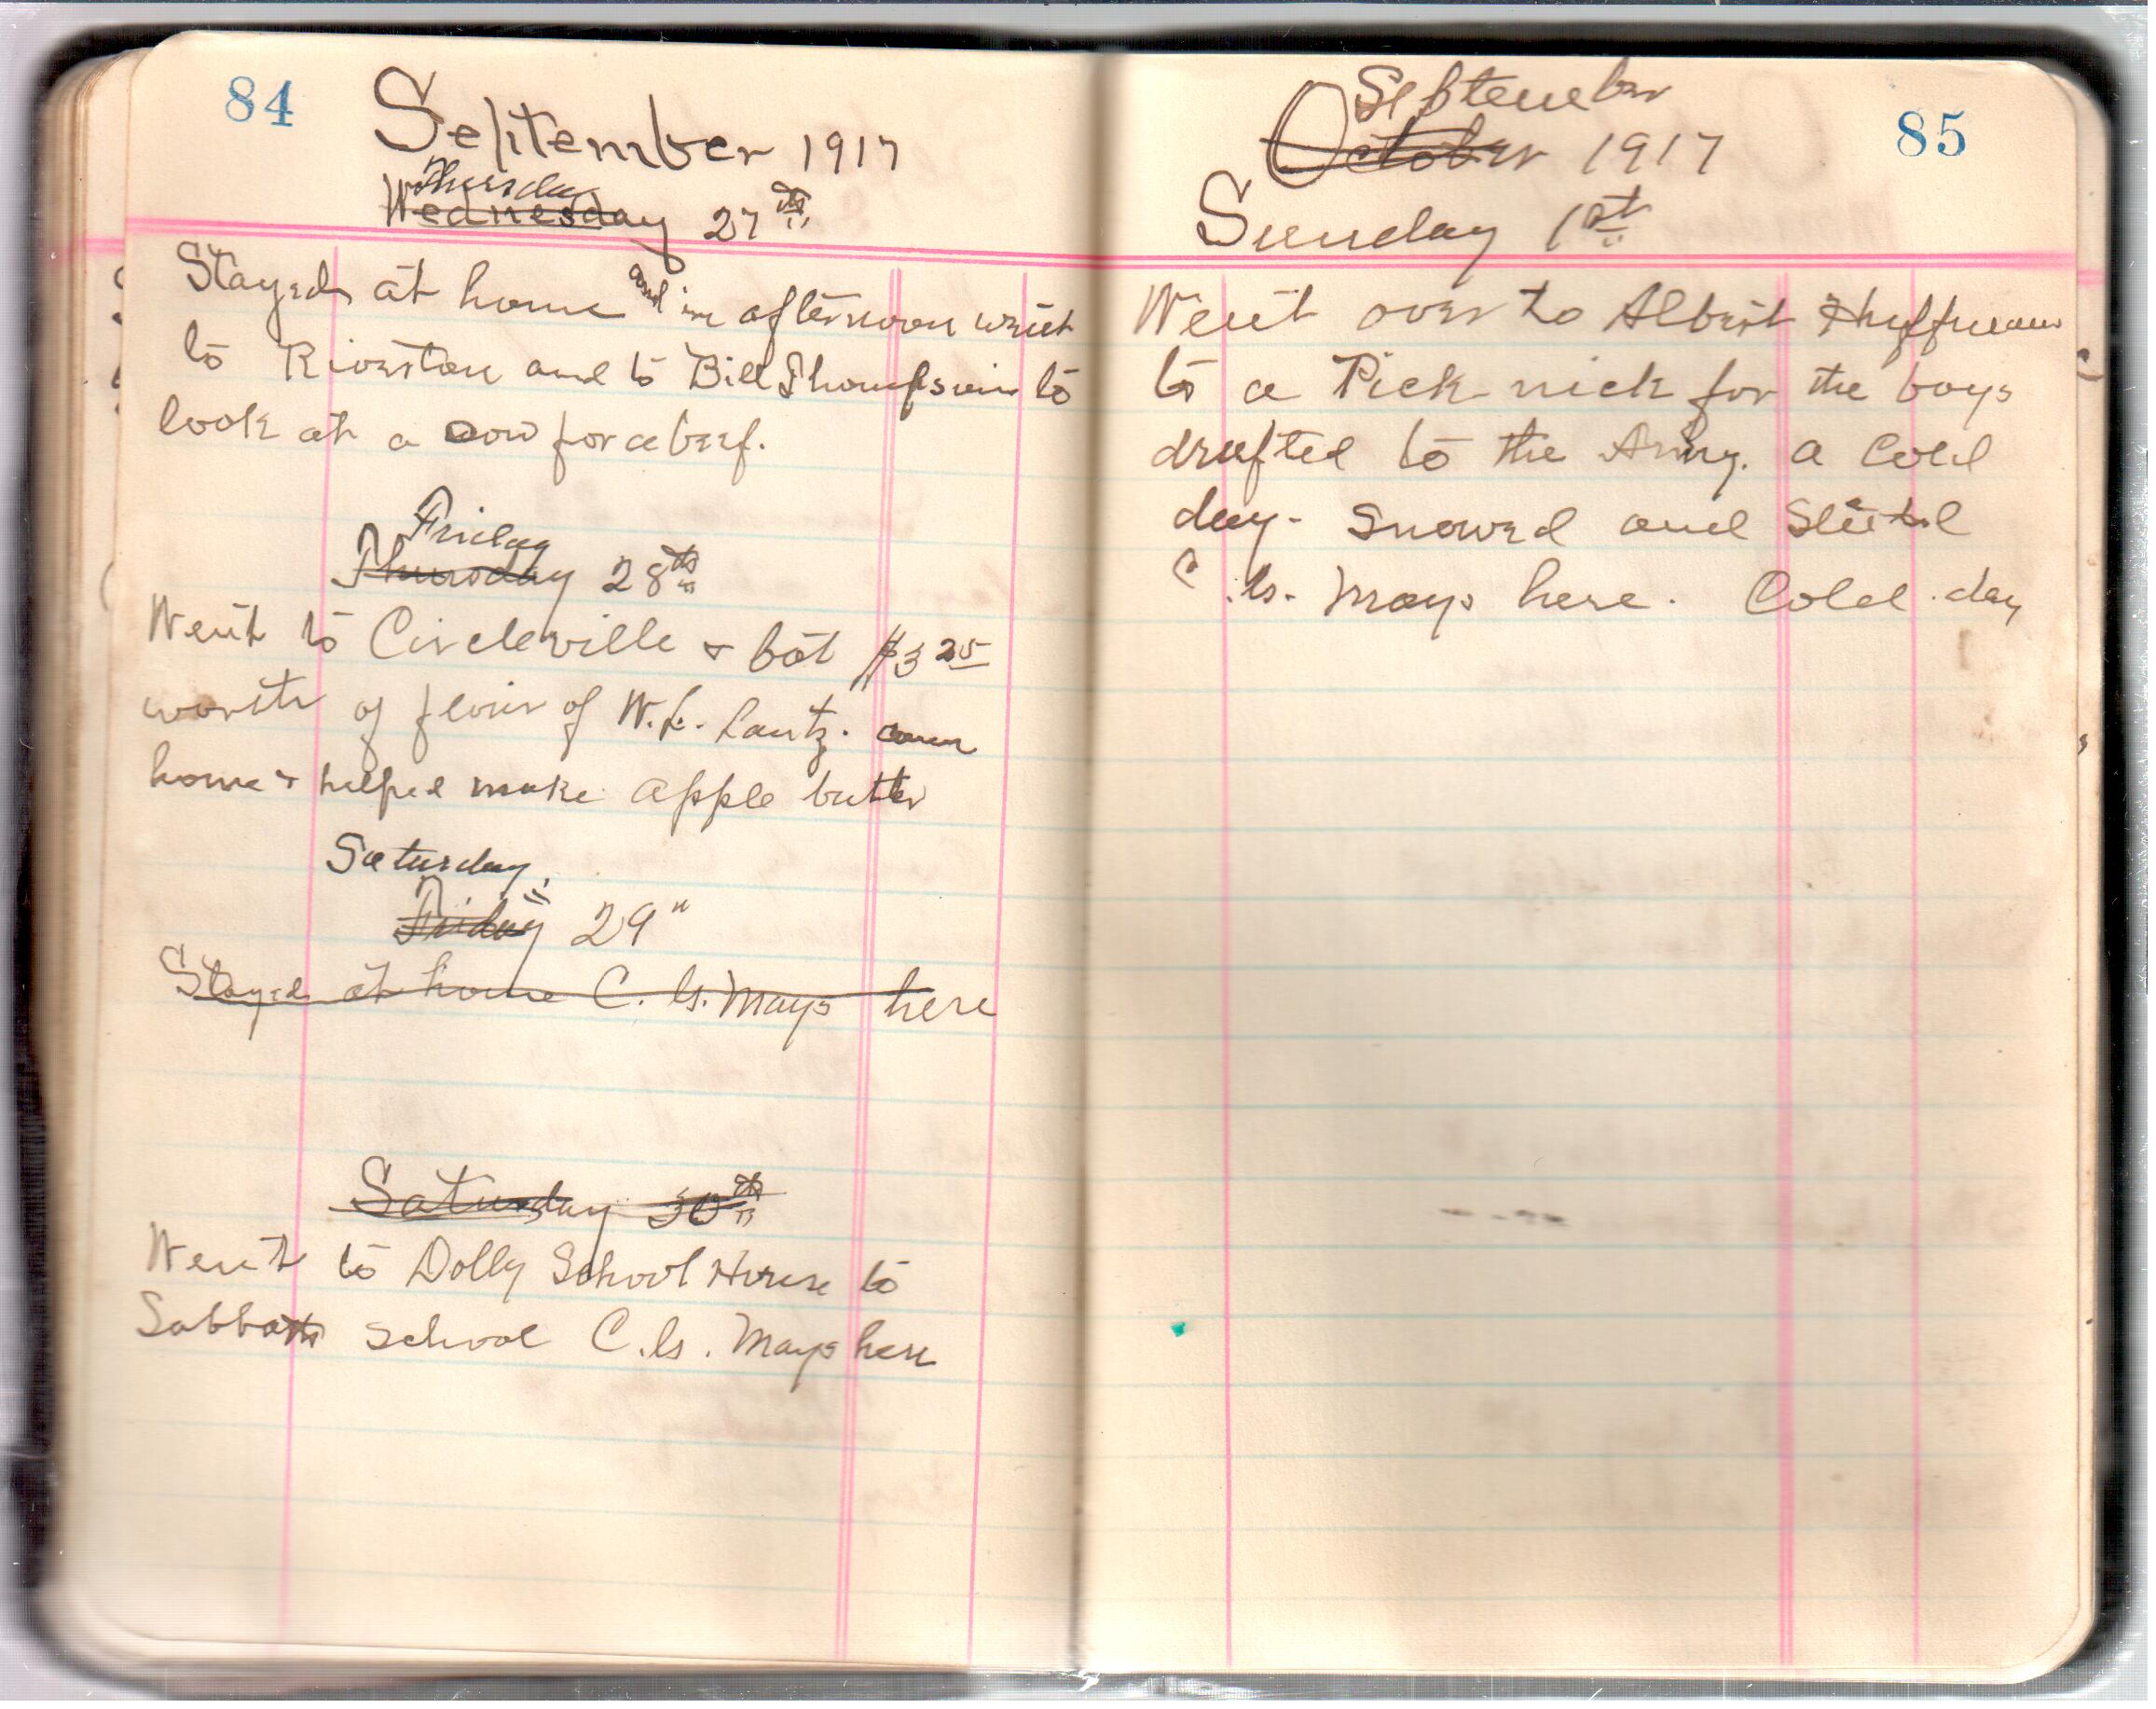 84
September 1917
Thursday
Wednesday 27th
Stayed at home and in afternoon went
to Riverton and to Bill Thompson to
look at a cow for a beef.
Friday
Thursday 28th
Went to Circleville & bot $3 25
worth of flour of W. L. Lantz.
home & helped make apple butter
Saturday
Friday 29"
Stayed at home C. G. Mays here
Saturday 30th
Went to Dolly School House to
Sabbath school C. G. Mays here
85
September
October 1917
Sunday 1st
Went over to Albert Huffman
to a Pick-nick for the boys
drafted to the Army. a Cold
day - Snowed and Sleeted
C. G. Mays here. Cold day